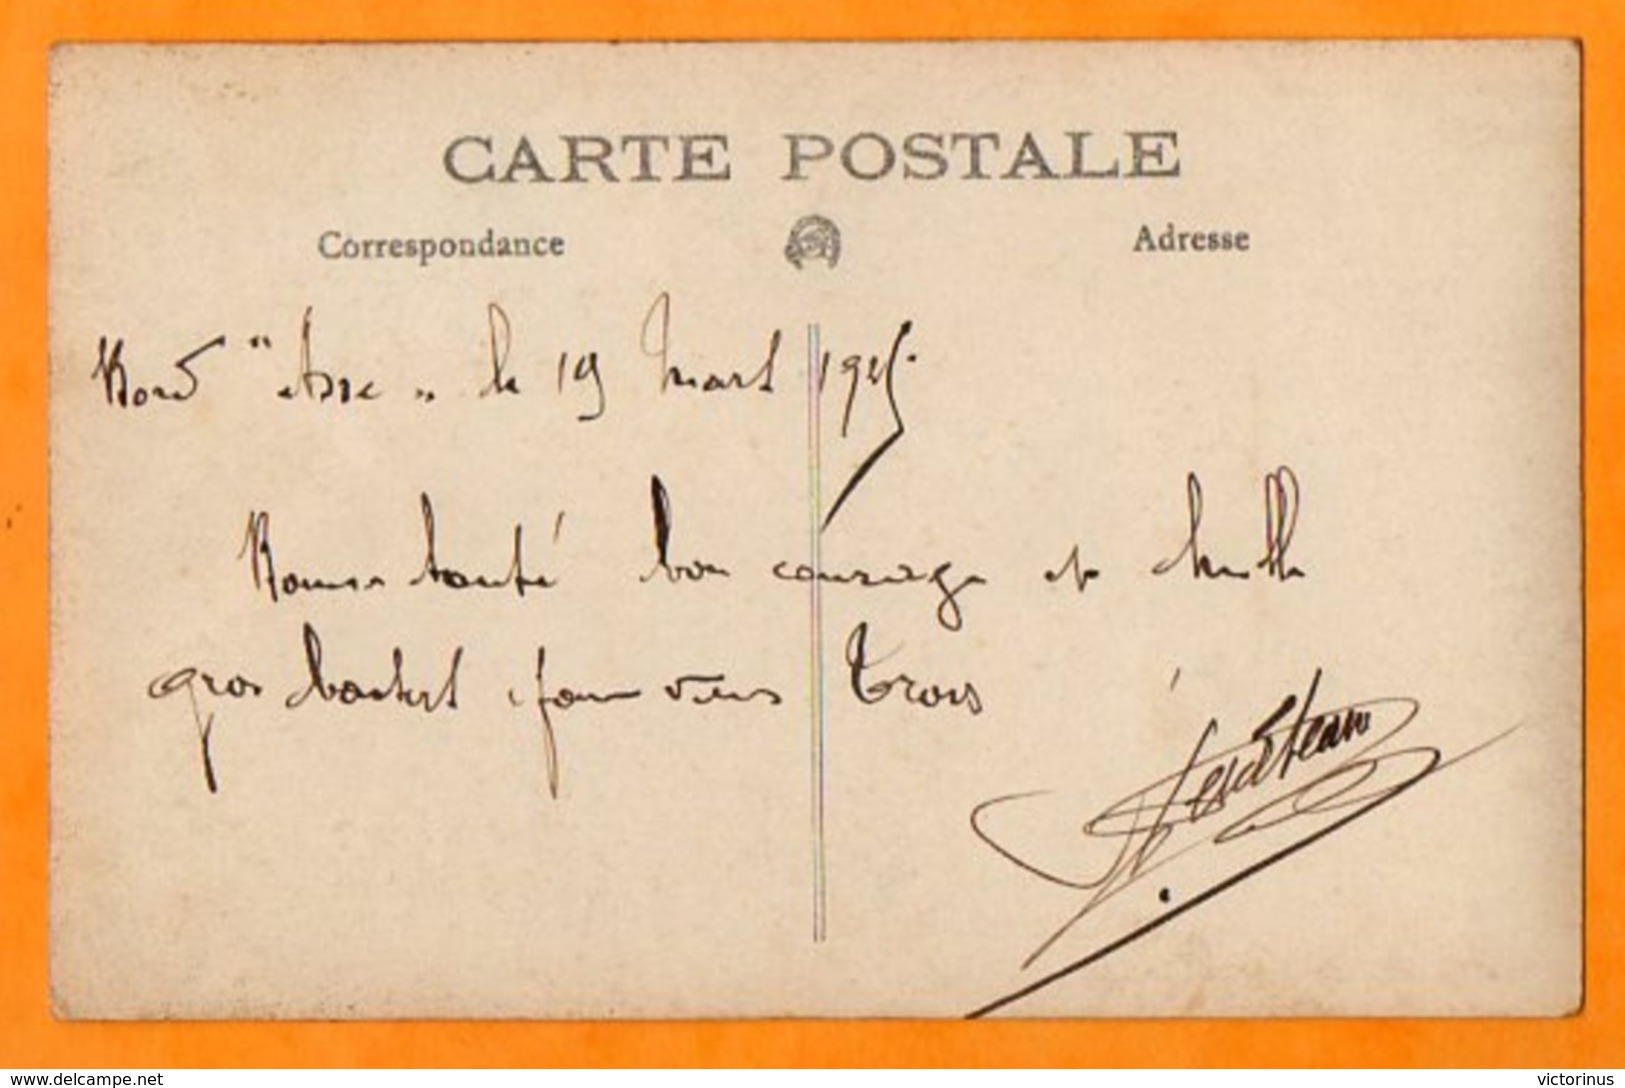 CARTE POSTALE
Correspondance
Adresse
Bord " " le 19 Mars 1925.
Bonne santé bon courage et mille
gros baisers pour vous trois
www.delcampe.net
victorinus